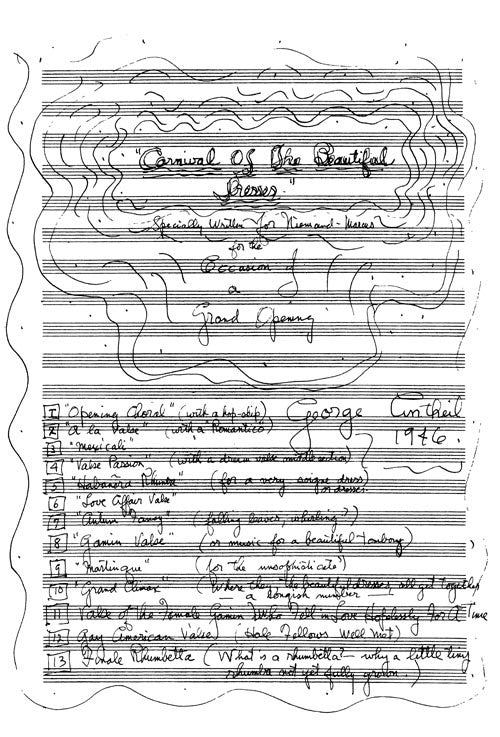 "Carnival Of The Beautiful
Dresses."
Specially Written for Nieman-Marcus
for the
Occasion of
a
Grand Opening
George Antheil
1946.
1 "Opening Choral" (with a hop-skip)
2 "A la Valse" (with a "Romantico")
3 "Mexicali"
4 "Valse Passion" (with a dream valse middle section)
5 "Habanera Rhumba" (for a very soigne dress)
or dresses.
6 "Love Affair Valse"
7 "Autumn Fancy" (falling leaves, whirling?)
8 "Gamin Valse" (or music for a beautiful tomboy)
9 "Martinque" (for the unsophisticate)
10 "Grand Climax" (Where they "the beautiful dresses" all get together
a Congish number —
11 Valse of the Female Gamin Who Fell in Love Hopelessly For A Time
12 Gay American Valse (Hale Fellows Well Met)
13 Finale Rhumbetta (What's a rhumbetta? — why a little tiny
rhumba not yet fully grown.)